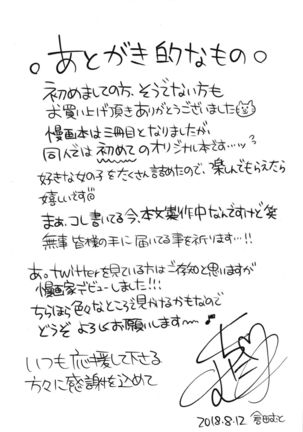 。あとがき的なもの。
初めましての方、そうでない方も
お買い上げ頂きありがとうございました
漫画本は三冊目となりましたが
同人では初めてのオリジナル本です…ッ?
好きな女の子をたくさん詰めたので、楽しんでもらえたら
嬉しいです
まぁ、コレ書いてる今、本文製作中なんですけど笑
無事皆様の手に届いてる事を祈ります…!!
あ。twitterを見ている方はご存知と思いますが
漫画家デビューしました!!!
ちらほら色々なところで見かけるかもなので
どうぞよろしくお願いします〜♪
いつも応援して下さる
方々に感謝を込めて
2018.8.12